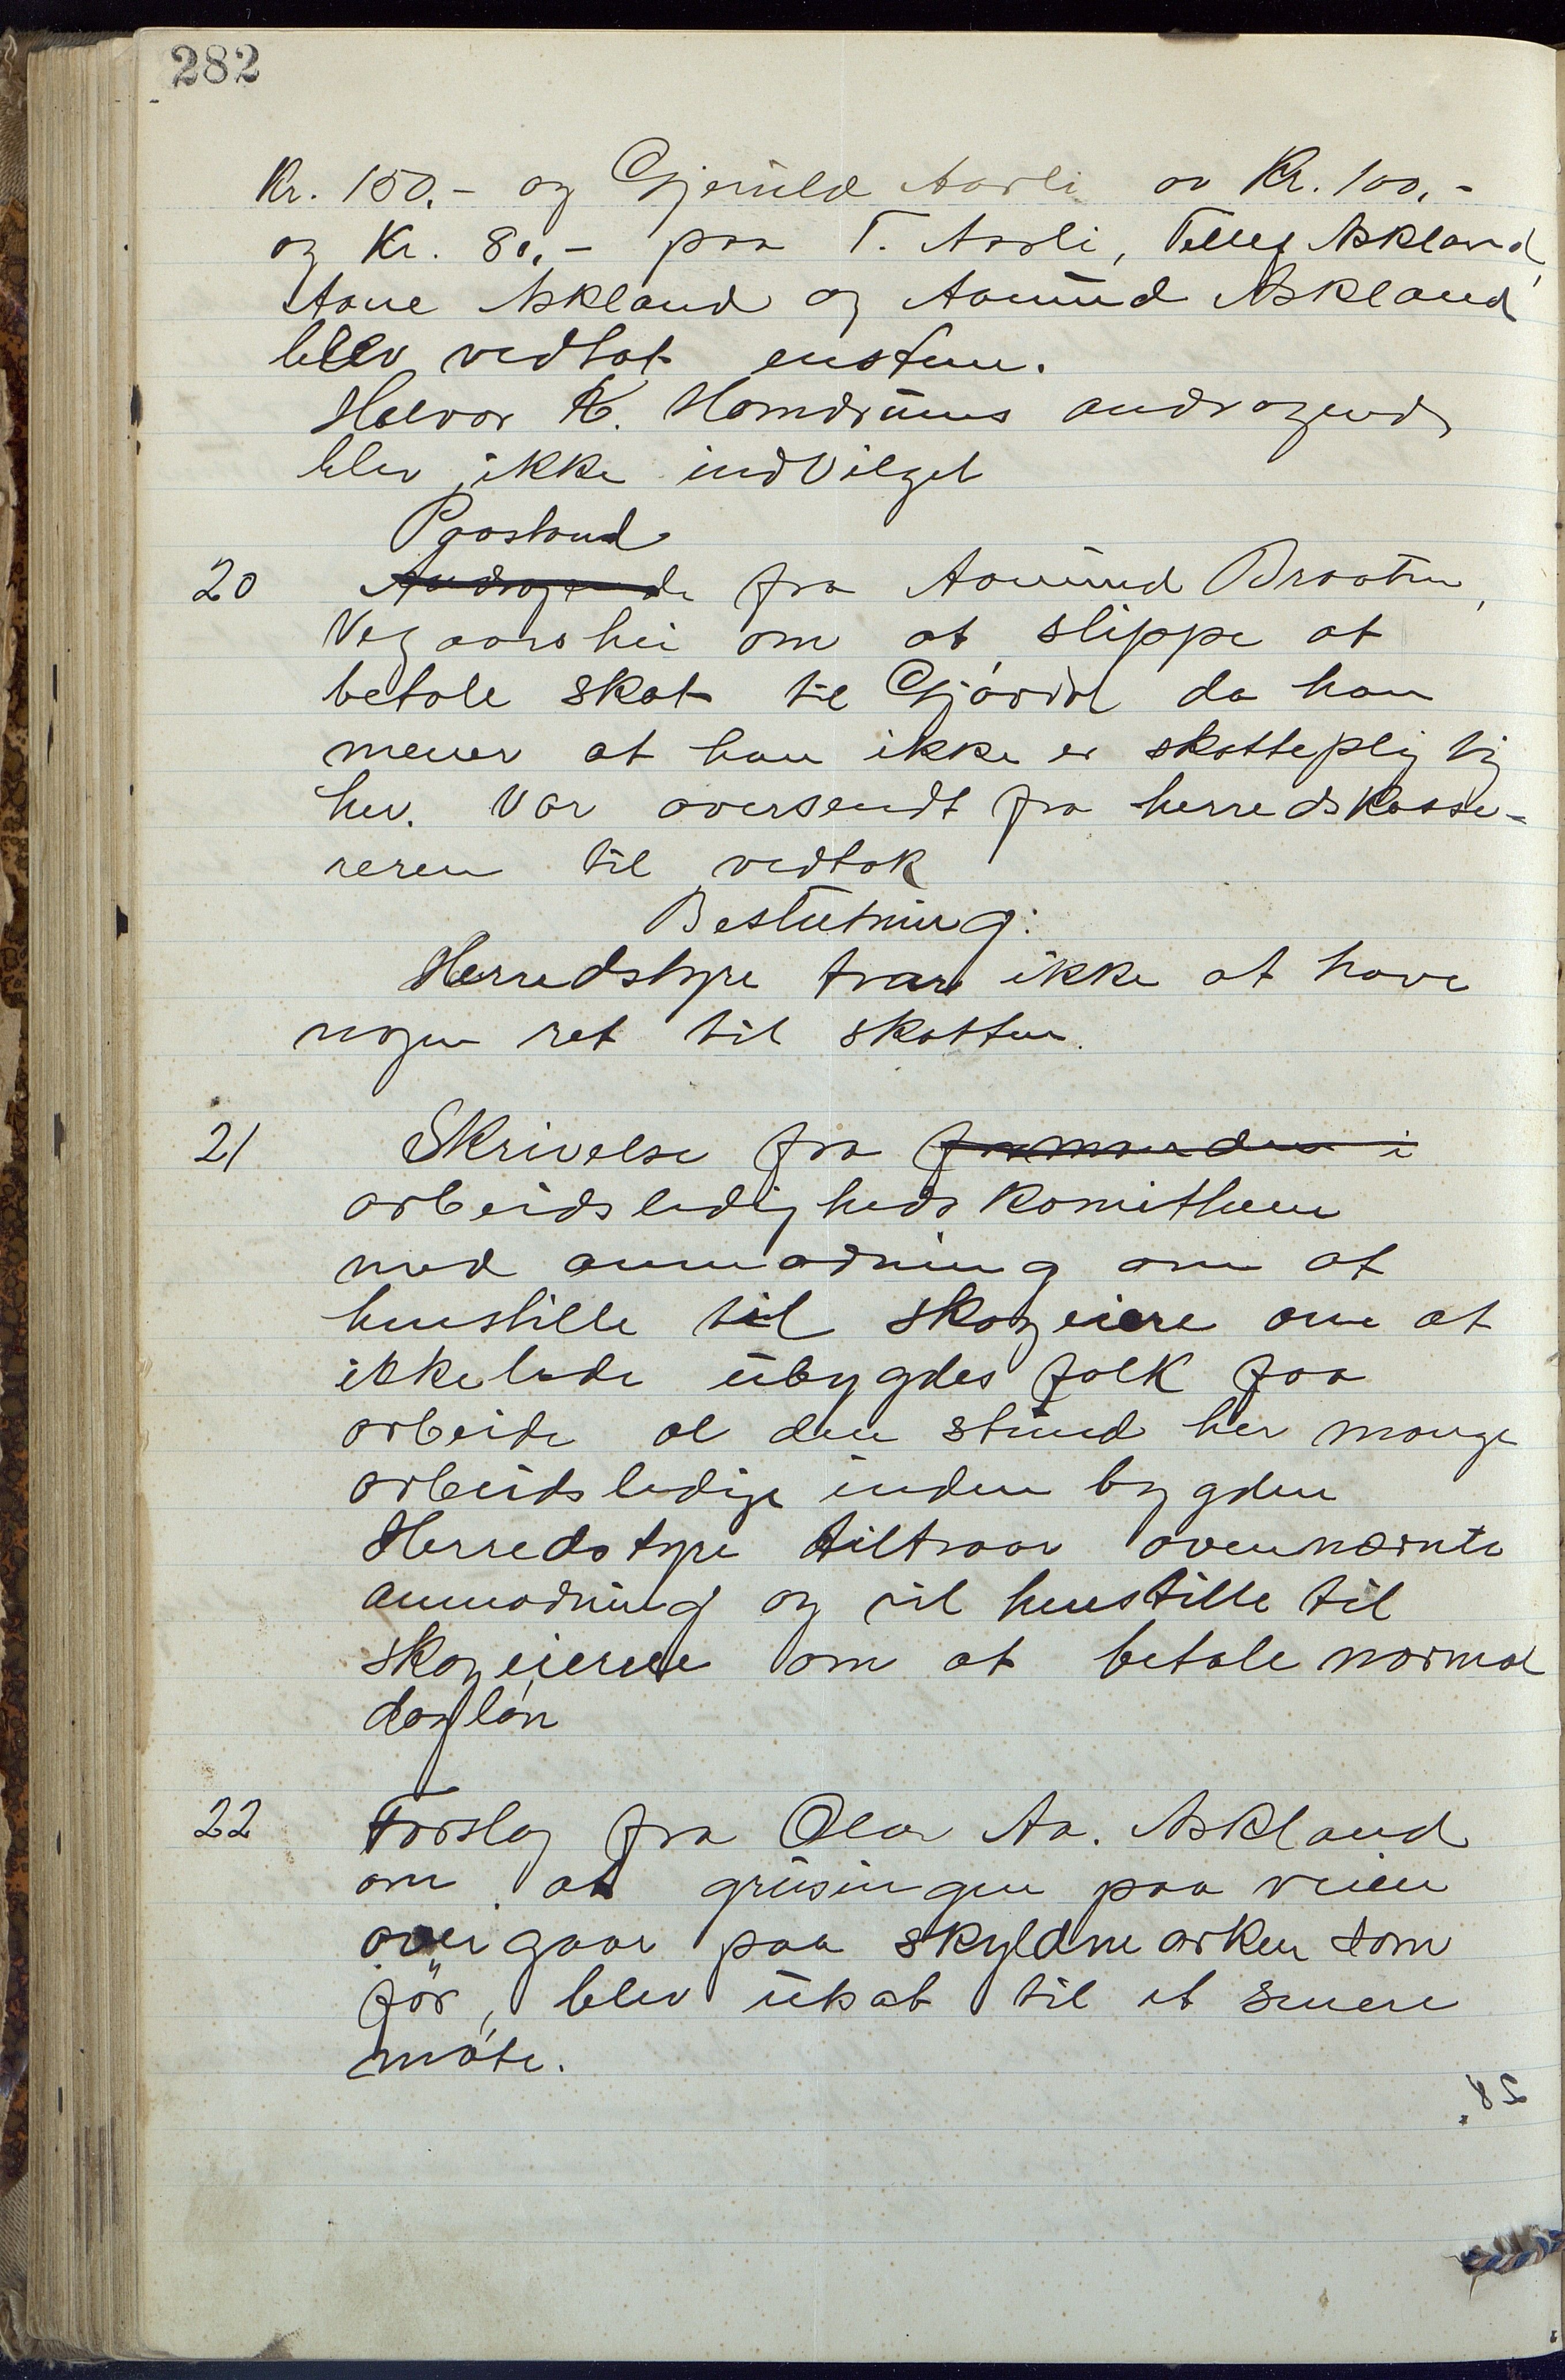 282
Kr. 150.- og Gjeruld Aasli av Kr. 100.-
og Kr. 80.- paa T. Aasli, Tellef Askland,
Aane Askland og Aanund Askland
blev vedtat enstem.
Halvor K. Homdrums andragende
blev ikke indvilget
Paastand
20 Andragende fra Aanund Braaten,
Vegaarshei om at slippe at
betale skat til Gjövdal da han
mener at han ikke er skattepligtig
her. Var oversendt fra herredskasse-
reren til vedtak
Beslutning:
Herredstyre tror ikke at have
nogen ret til skatten.
21 Skrivelse fra formanden i
arbeidsledighedskomitheen
med anmodning om at
henstille til skogeiere om at
ikke lade übygdes folk faa
arbeide al den stund her mange
arbeidsledige inden bygden
Herredstyre tiltraar ovennævnte
anmodning og vil henstille til
skogeierne om at betale normal
daglön
22 Forslag fra Olav Aa. Askland
om at grüsingen paa veien
overgaar paa skyldmarken som
för, blev ütsat til et senere
möte.